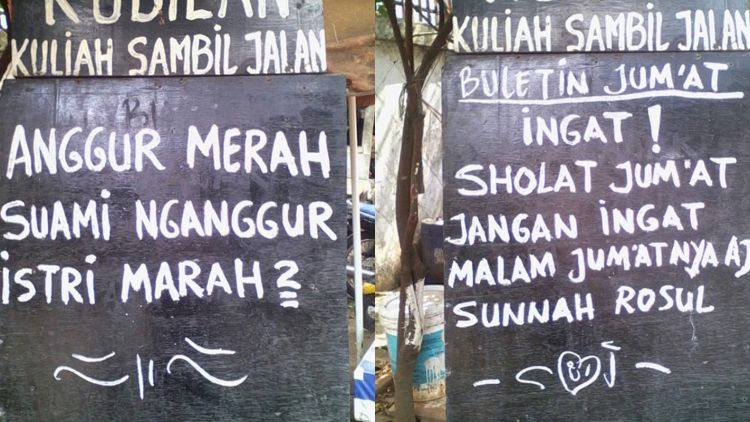 KUDILAN
KULIAH SAMBIL JALAN
ANGGUR MERAH
SUAMI NGANGGUR
ISTRI MARAH2
KULIAH SAMBIL JALAN
BULETIN JUM'AT
INGAT!
SHOLAT JUM'AT
JANGAN INGAT
MALAM JUM'ATNYA AJ
SUNNAH ROSUL